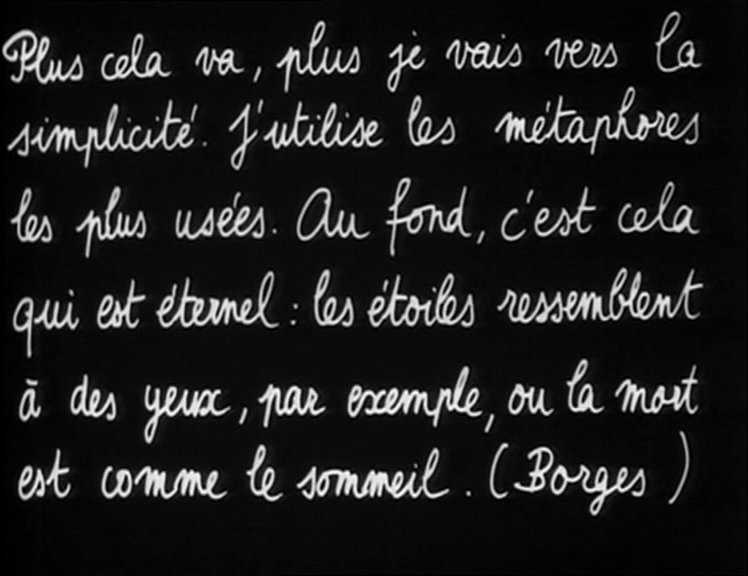 Plus cela va, plus je vais vers la
simplicité. J'utilise les métaphores
les plus usées. Au fond, c'est cela
qui est éternel : les étoiles ressemblent
à des yeux, par exemple, ou la mort
est comme le sommeil. (Borges)